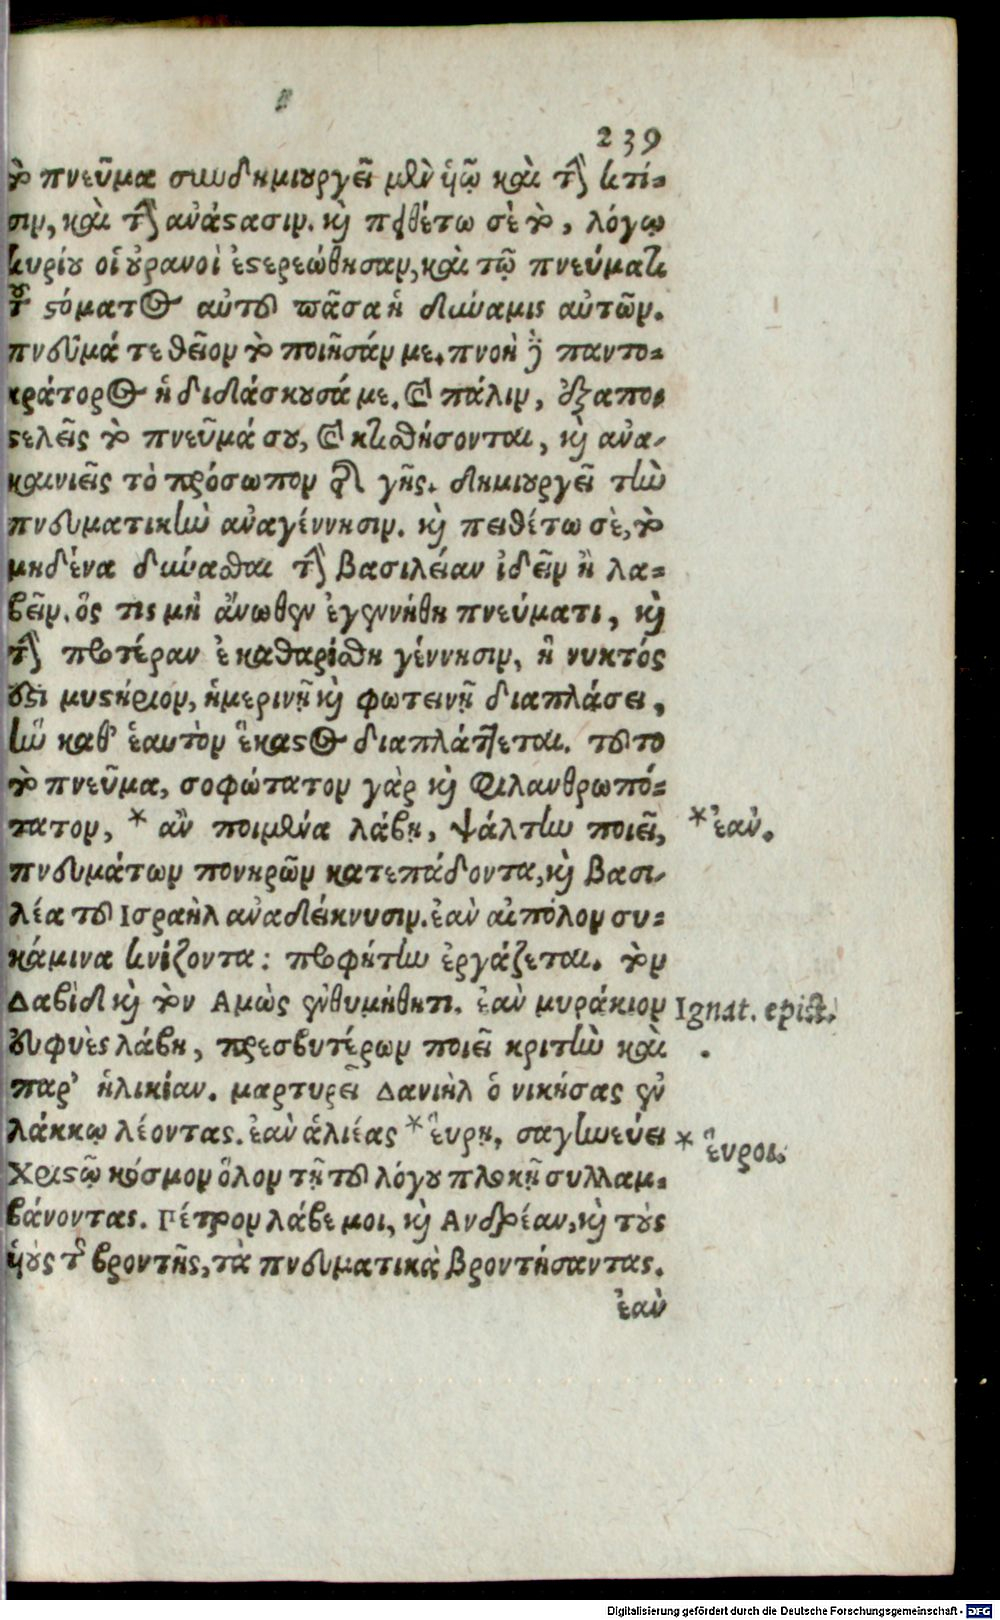 239
τὸ πνεῦμα συνδημιουργεῖ μὲν ὑιῷ καὶ τὴν κτί-
σιν, καὶ τὴν ἀνάστασιν. καὶ πειθέτω σὲ τὸ, λόγῳ
κυρίου οἱ οὐρανοὶ ἐστερεώθησαν, καὶ τῷ πνεύματι
τοῦ στόματος αὐτοῦ πᾶσα ἡ δύναμις αὐτῶν.
πνεῦμά τε θεῖον τὸ ποιῆσάν με. πνοὴ δὲ παντο-
κράτορος ἡ διδάσκουσά με. καὶ πάλιν, ἐξαπο-
στελεῖς τὸ πνεῦμά σου, καὶ κτισθήσονται, καὶ ἀνα-
καινιεῖς τὸ πρόσωπον τῆς γῆς. δημιουργεῖ τὴν
πνευματικὴν ἀναγέννησιν. καὶ πειθέτω σὲ, τὸ
μηδένα δύνασθαι τὴν βασιλείαν ἰδεῖν ἢ λα-
βεῖν. ὅς τις μὴ ἄνωθεν ἐγεννήθη πνεύματι, καὶ
τὴν προτέραν ἐκαθαρίσθη γέννησιν, ἢ νυκτός
ἐστι μυστήριον, ἡμερινῇ καὶ φωτεινῇ διαπλάσει,
ἣν καθ’ ἑαυτὸν ἕκαστος διαπλάττεται. τοῦτο
τὸ πνεῦμα, σοφώτατον γὰρ καὶ φιλανθρωπό-
τατον, * ἂν ποιμένα λάβῃ, ψάλτην ποιεῖ,
* ἐαν.
πνευμάτων πονηρῶν κατεπάδοντα, καὶ βασι-
λέα τοῦ Ισραὴλ ἀναδείκνυσιν. ἐὰν αἰπόλον συ-
κάμινα κνίζοντα: προφήτην ἐργάζεται. τὸν
Δαβὶδ καὶ τὸν Αμὼς ἐνθυμήθητι. ἐὰν μυράκιον
Ignat. epist.
εὐφυὲς λάβῃ, πρεσβυτέρων ποιεῖ κριτὴν καὶ
παρ’ ἡλικίαν. μαρτυρεῖ Δανιὴλ ὁ νικήσας ἐν
λάκκῳ λέοντας. ἐὰν ἁλιέας * ἕυρῃ, σαγηνεύει
* ἕυροι.
Χριστῷ κόσμον ὅλον τῇ τοῦ λόγου πλοκῇ συλλαμ-
βάνοντας. Πέτρον λάβε μοι, καὶ Ανδρέαν, καὶ τοὺς
ὑιοὺς τῆς βροντῆς, τὰ πνευματικὰ βροντήσαντας.
ἐὰν
Digitalisierung gefördert durch die Deutsche Forschungsgemeinschaft - DFG